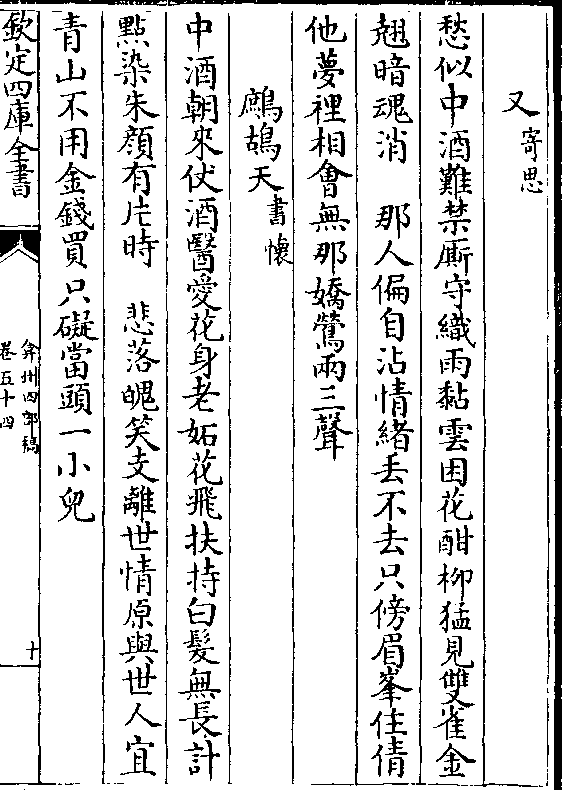 又寄思
愁似中酒難禁廝守織雨黏雲困花酣柳猛見雙雀金
翹暗魂消　那人偏自沾情緒丢不去只傍眉峯住倩
他夢裡相會無那嬌鶯兩三聲
鷓鴣天書懷
中酒朝來仗酒醫愛花身老妬花飛扶持白髮無長計
點染朱顔有片時　悲落魄笑支離世情原與世人宜
青山不用金錢買只礙當頭一小兒
欽定四庫全書
弇州四部稿
卷五十四
十